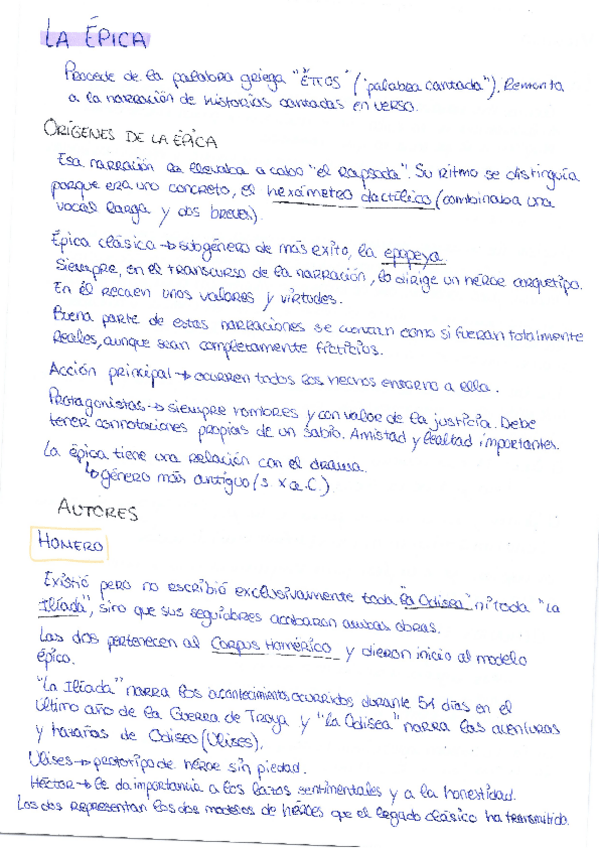 LA ÉPICA
Procede de la palabra griega "Étros" ("palabra cantada"). Remonta
a la narración de historias cantadas en verso.
ORÍGENES DE LA ÉPICA
Esa narración la llevaba a cabo "el Rapsoda". Su ritmo se distinguía
porque era uno concreto, el hexámetro dactílico (combinaba una
vocal larga y dos breves).
Épica clásica → subgénero de más exito, la epopeya.
Siempre, en el transcurso de la narración, lo dirige un héroe arquetipo.
En él recaen unos valores y virtudes.
Buena parte de estas narraciones se cuentan como si fueran totalmente
reales, aunque sean completamente ficticios.
Acción principal → ocurren todos los hechos entorno a ella.
Protagonistas → siempre hombres y con valor de la justicia. Debe
tener connotaciones propias de un sabio. Amistad y lealtad importantes.
La épica tiene una relación con el drama.
↳ género más antiguo (s. X a.C.)
AUTORES
HOMERO
Existió pero no escribió exclusivamente toda "la Odisea" ni toda "La
Ilíada", sino que sus seguidores acabaron ambas obras.
Las dos pertenecen al Corpus Homérico y dieron inicio al modelo
épico.
"La Ilíada" narra los acontecimientos ocurridos durante 51 días en el
último año de la Guerra de Troya y "la Odisea" narra las aventuras
y hazañas de Odiseo (Ulises).
Ulises → prototipo de héroe sin piedad.
Héctor → le da importancia a los lazos sentimentales y a la honestidad.
Los dos representan los dos modelos de héroes que el legado clásico ha transmitido.